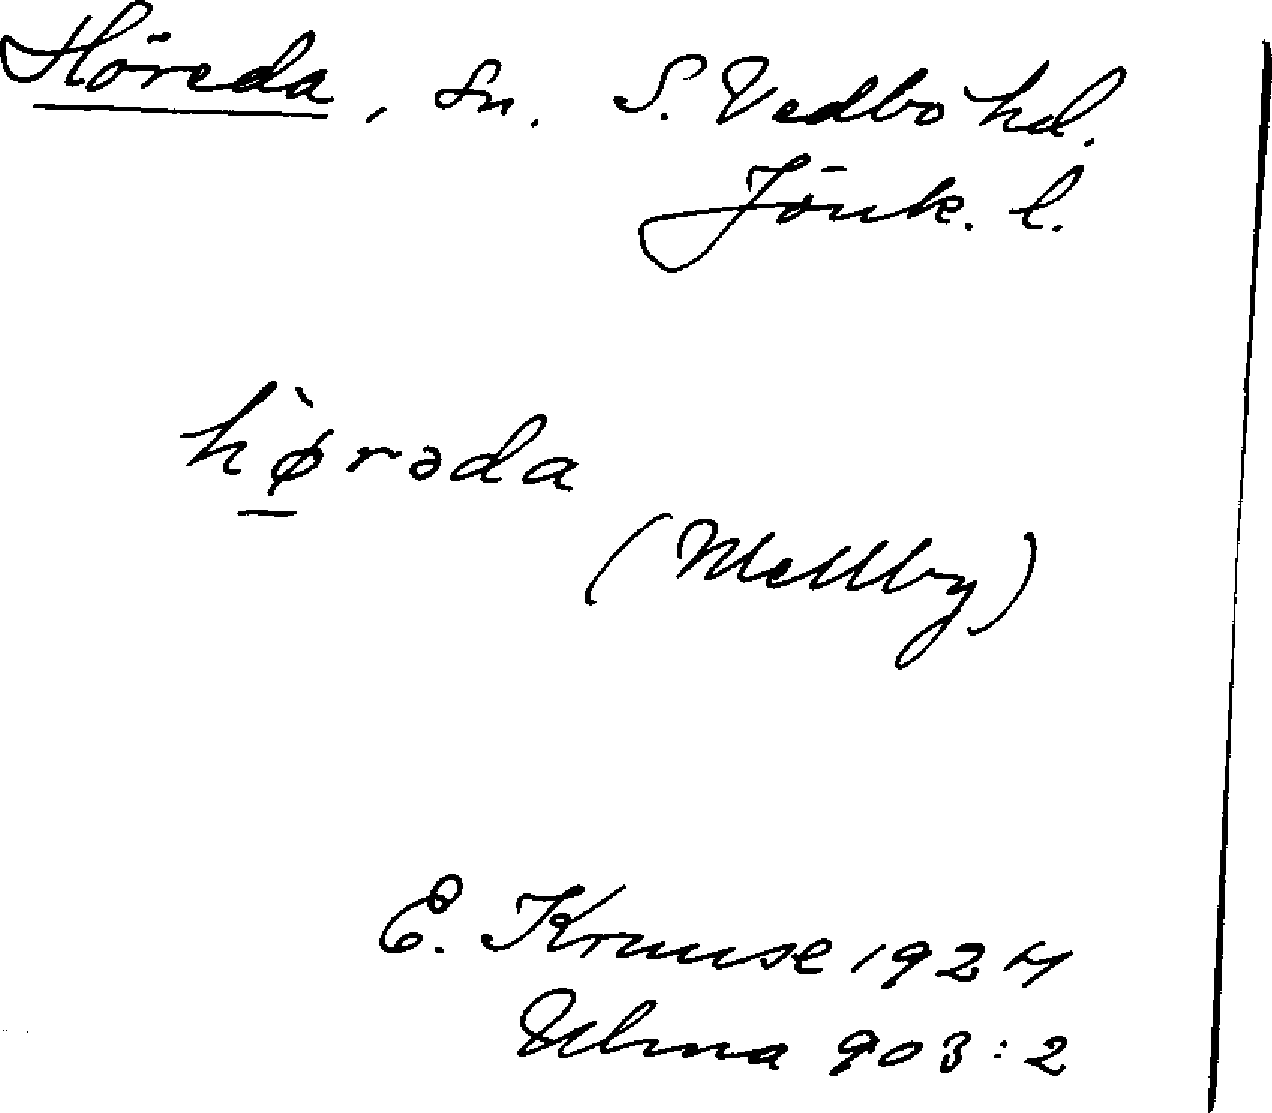 Höreda, sn. S. Vedbo hd.
Jönk. l.
hø̀rəda
(Mellby)
E. Krause 1924
Ulma 903:2